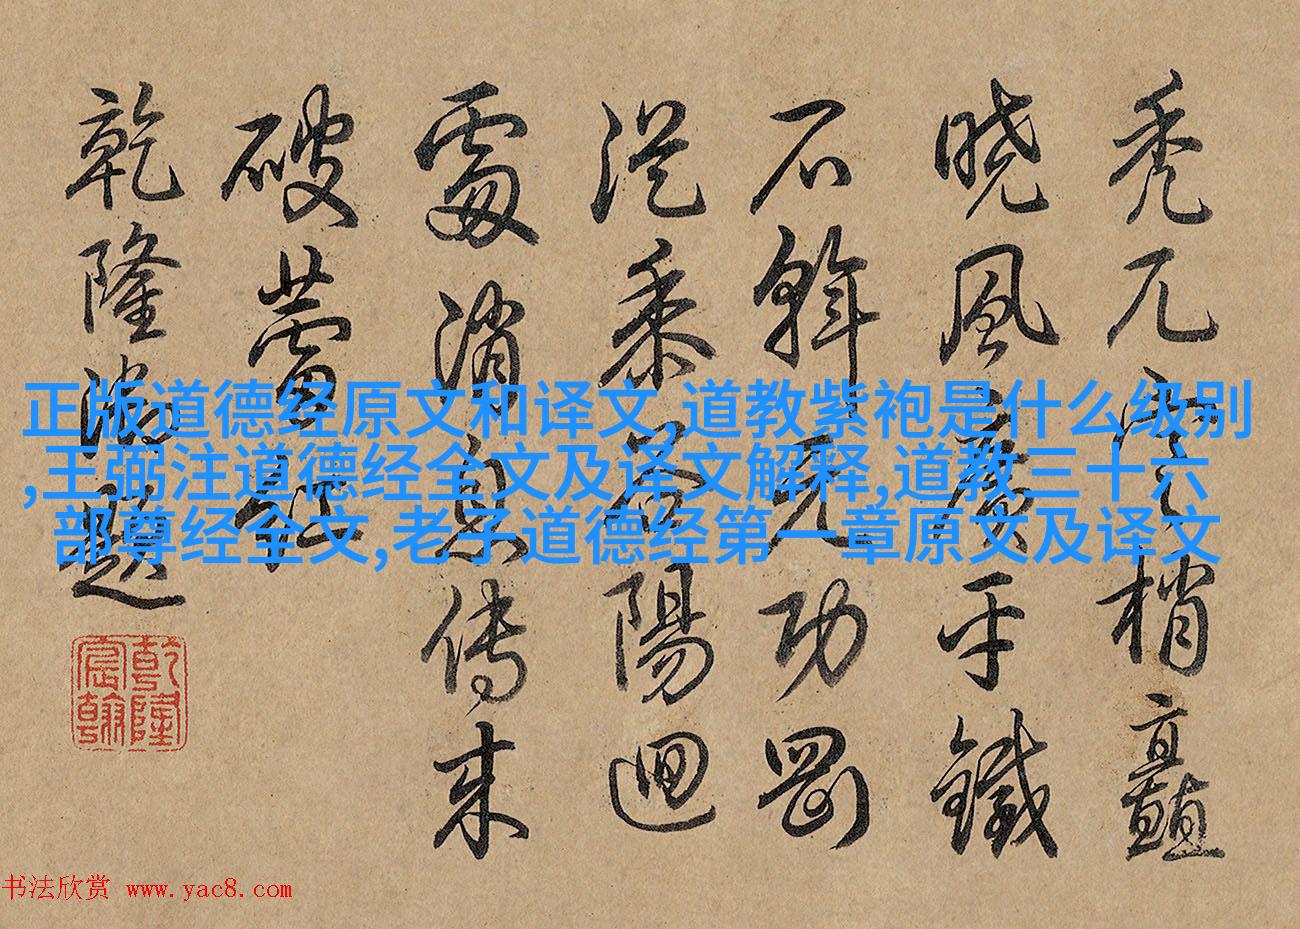 禿兀梢
曉風平鐵
石斡見功罡
從黍谷陽迴
處消息傳来
破蕾
乾隆御題
乾隆宸翰
正版道德经原文和译文,道教紫袍是什么级别
,王弼注道德经全文及译文解释,道教三十六
部尊经全文,老子道德经第一章原文及译文
书法欣赏 www.yac8.com